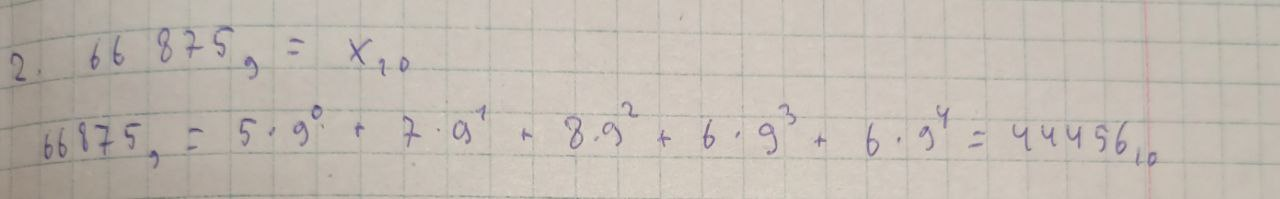 2. 66 875₉ = x₁₀
66875₉ = 5·9⁰ + 7·9¹ + 8·9² + 6·9³ + 6·9⁴ = 44456₁₀